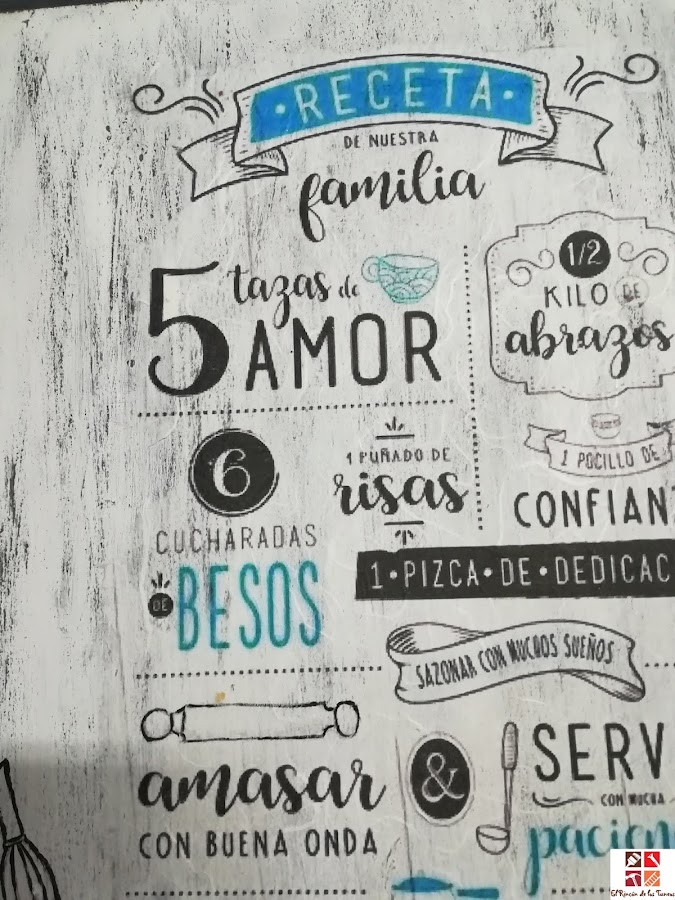 RECETA
DE NUESTRA
familia
5 tazas de
AMOR
1/2
KILO DE
abrazos
6
CUCHARADAS
DE
BESOS
1 PUÑADO DE
risas
1 POCILLO DE
CONFIAN
1·PIZCA·DE·DEDICAC
SAZONAR CON MUCHOS SUEÑOS
amasar
CON BUENA ONDA
&
SERV
CON MUCHA
pacien
El Rincón de las Tareas